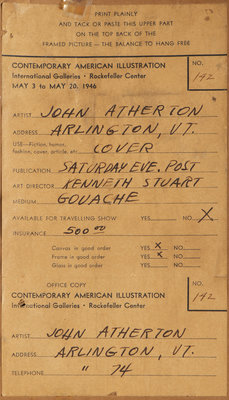 PRINT PLAINLY
AND TACK OR PASTE THIS UPPER PART
ON THE TOP BACK OF THE
FRAMED PICTURE — THE BALANCE TO HANG FREE
CONTEMPORARY AMERICAN ILLUSTRATION
International Galleries • Rockefeller Center
MAY 3 to MAY 20, 1946
NO.
142
ARTIST JOHN ATHERTON
ADDRESS ARLINGTON, VT.
USE—Fiction, humor, fashion, cover, article, etc. COVER
PUBLICATION SATURDAY EVE. POST
ART DIRECTOR KENNETH STUART
MEDIUM GOUACHE
AVAILABLE FOR TRAVELLING SHOW YES NO X
INSURANCE 500 00
Canvas in good order YES X NO
Frame in good order YES X NO
Glass in good order YES NO
OFFICE COPY
CONTEMPORARY AMERICAN ILLUSTRATION
International Galleries • Rockefeller Center
NO.
142
ARTIST JOHN ATHERTON
ADDRESS ARLINGTON, VT.
TELEPHONE " 74